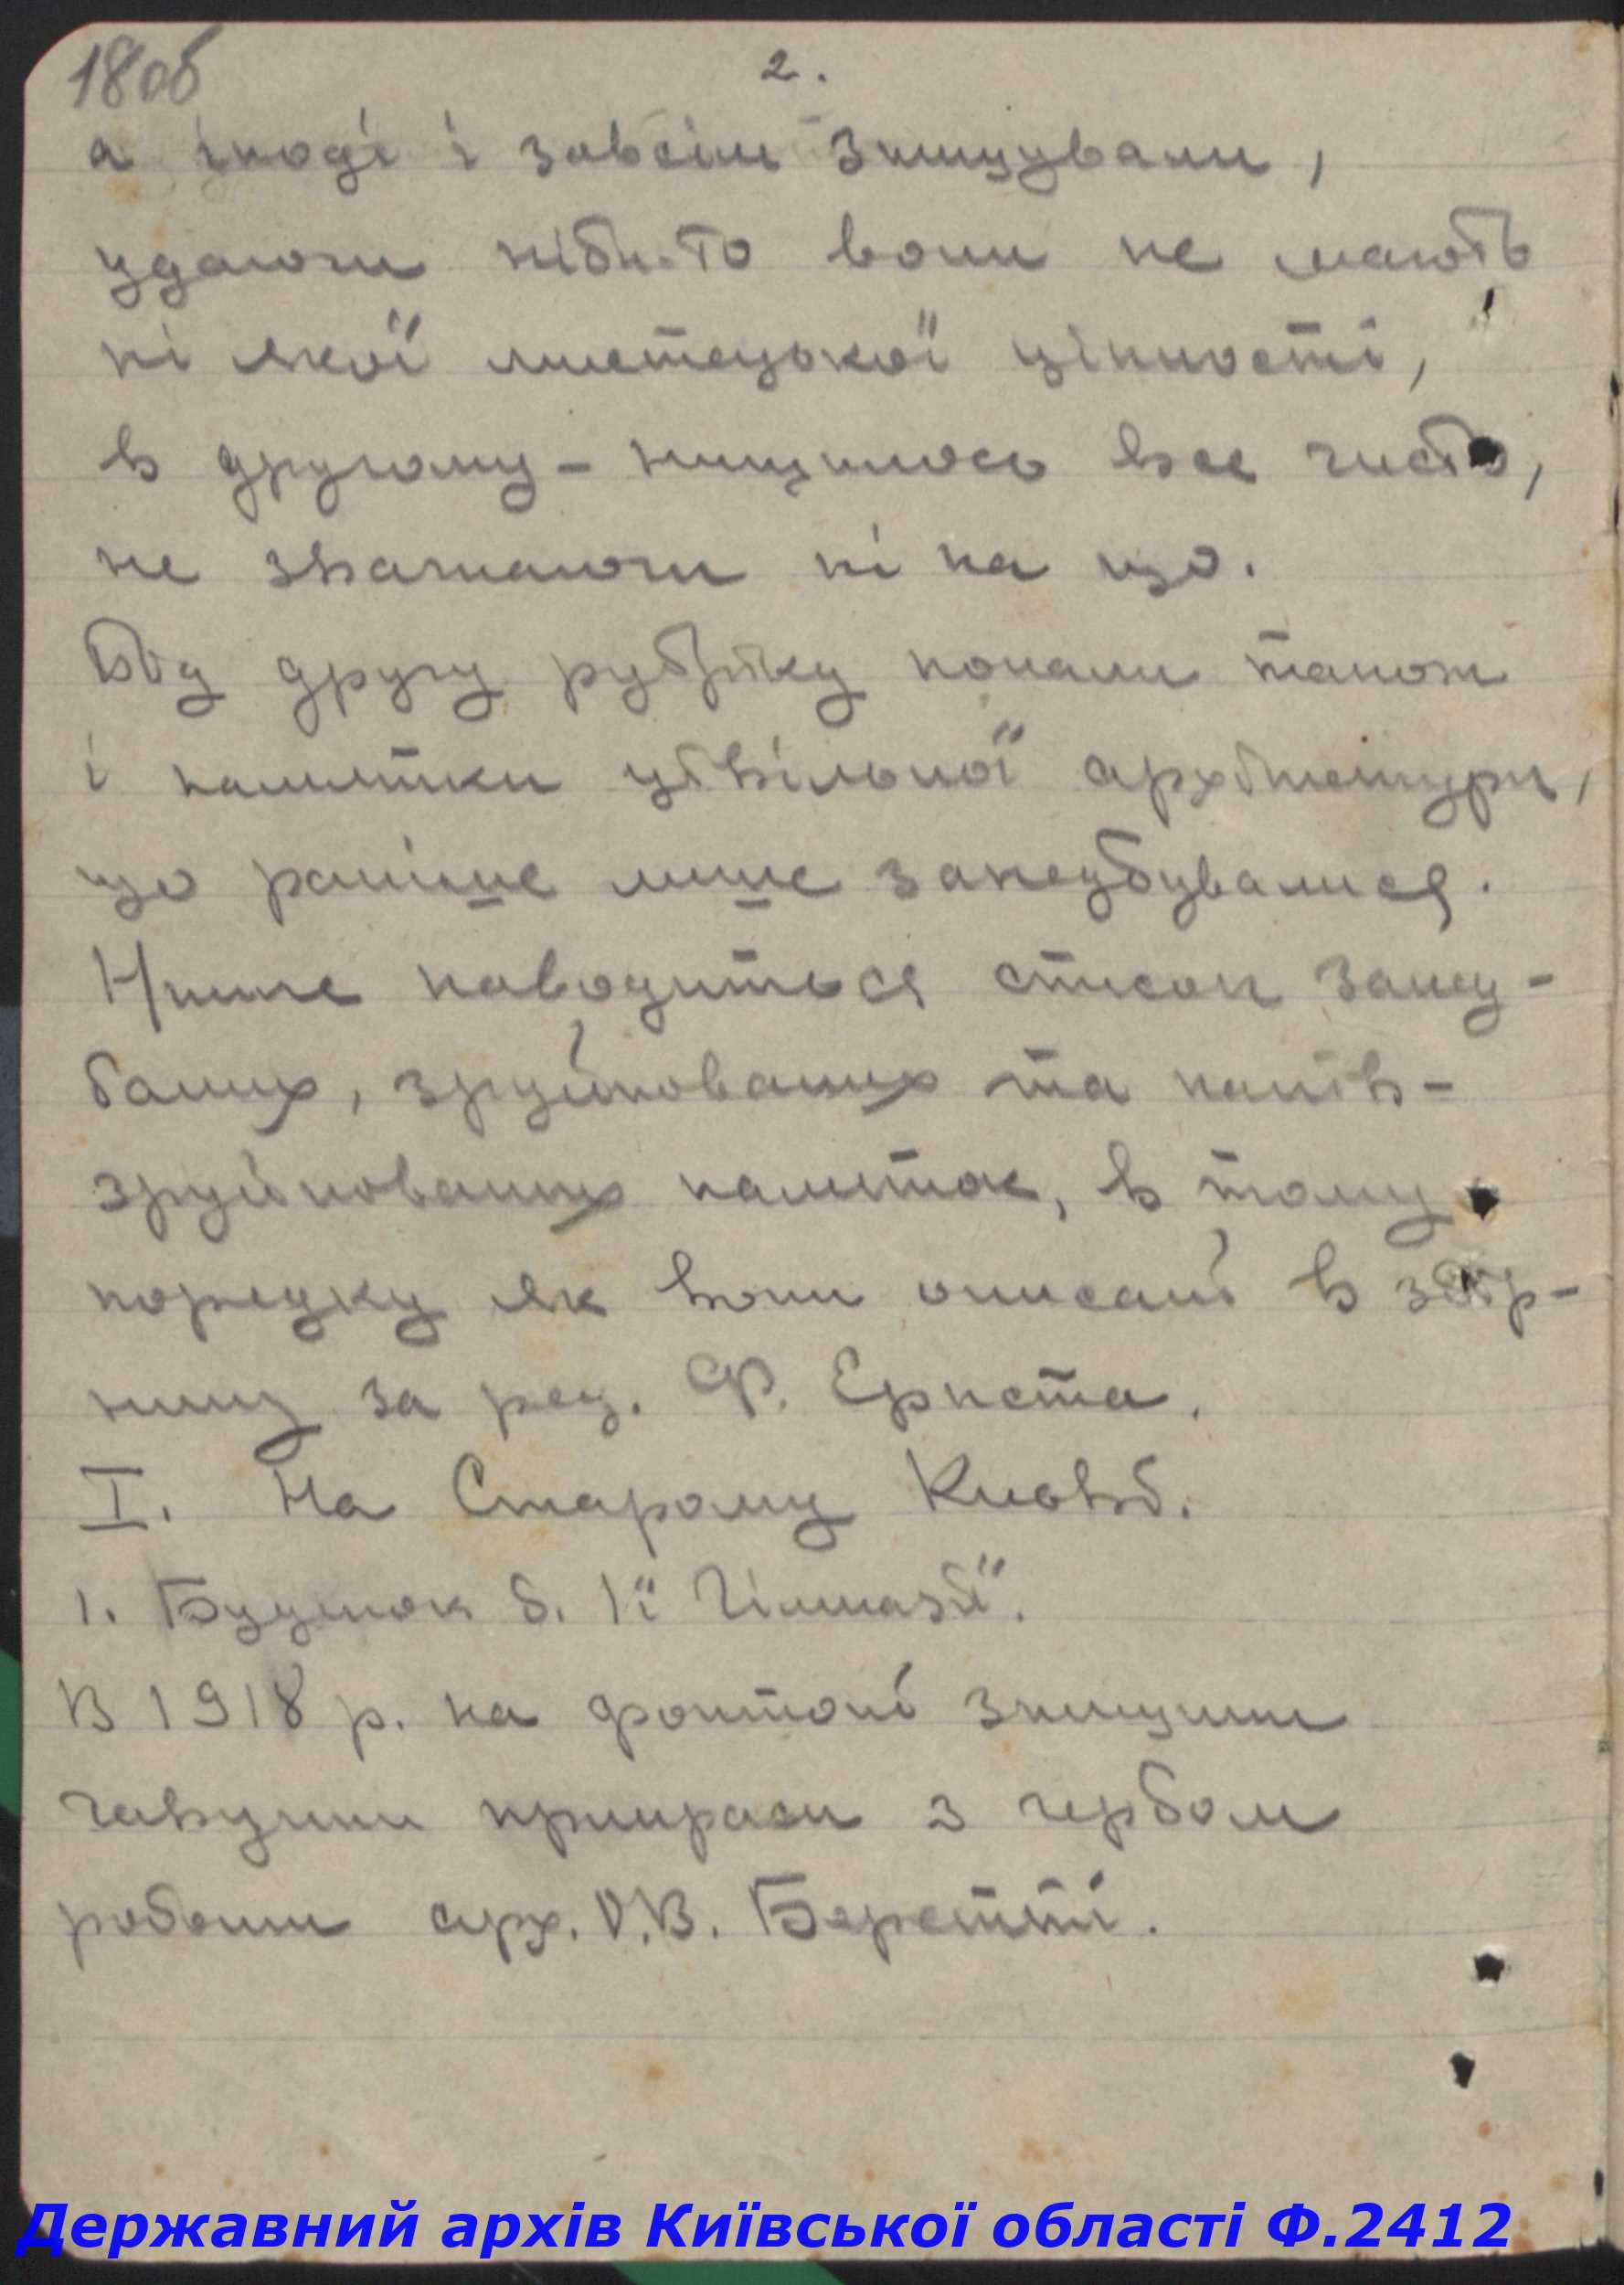 18об
2.
а іноді і зовсім знищували,
удаючи ніби-то вони не мають
ні якої мистецької цінности,
в другому - нищилось все чисто,
не зважаючи ні на що.
Під другу рубріку попали також
і памятки цівільної архітектури,
що раніше лише занедбувалися.
Нижче наводиться список занед-
баних, зруйнованих та напів-
зруйнованих памяток, в тому
порядку як вони описані в збір-
нику за ред. Ф. Ернста.
I. На Старому Києві.
1. Будинок б. 1ї Гімназії.
В 1918 р. на фронтоні знищили
чавунні прикраси з гербом
роботи арх. О.В. Беретті.
Державний архів Київської області Ф.2412